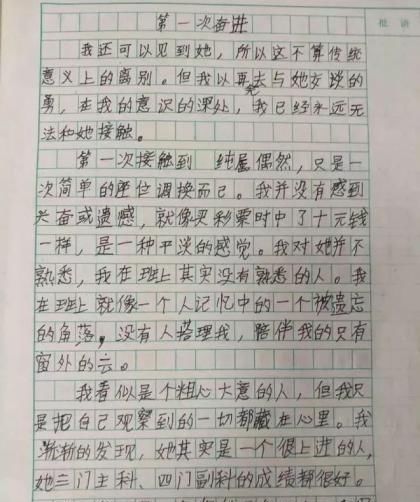 批语
第一次奋进
我还可以见到她，所以这不算传统
意义上的离别。但我以再去与她交谈的
勇，在我的意识的深处，我已经永远无
法和她接触。
第一次接触到 纯属偶然，只是一
次简单的座位调换而已。我并没有感到
兴奋或遗憾，就像买彩票时中了十元钱
一样，是一种平淡的感觉。我对她并不
熟悉，我在班上其实没有熟悉的人。我
在班上就像一个人记忆中的一个被遗忘
的角落，没有人搭理我，陪伴我的只有
窗外的云。
我看似是个粗心大意的人，但我只
是把自己观察到的一切都藏在心里。我
渐渐的发现，她其实是一个很上进的人，
她三门主科、四门副科的成绩都很好。